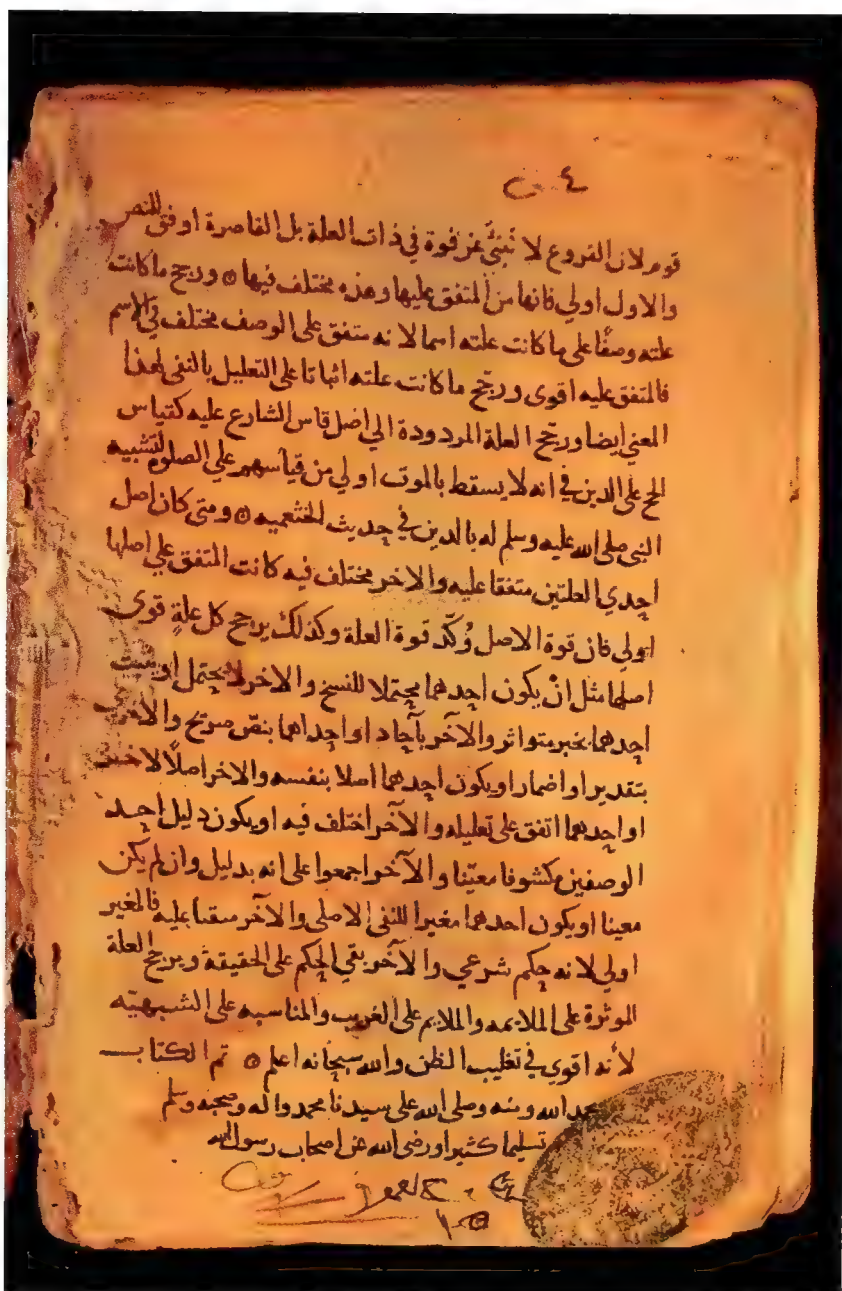 ٤
قوم لان الفروع لا تبنى عن قوة في ذات العلة بل القاصرة اوفق للنص
والاول اولي فانها من المتفق عليها وهذه مختلف فيها ۞ ورجح ما كانت
علته وصفًا على ما كانت علته اسما لانه متفق على الوصف مختلف في الاسم
فالمتفق عليه اقوى ورجح ما كانت علته اثباتا على التعليل بالنفى لهذا
المعني ايضا ورجح العلة المردودة الي اصل قاس الشارع عليه كقياس
الحج على الدين في انه لا يسقط بالموت اولي من قياسهم علي الصلوة لتشبيه
النبي صلى الله عليه وسلم له بالدين في حديث الخثعميه ۞ ومتى كان اصل
احدي العلتين متفقا عليه والاخر مختلف فيه كانت المتفق علي اصلها
اولي فان قوة الاصل تُؤكد قوة العلة وكذلك يرجح كل علةٍ قوى
اصلها مثل انْ يكون احدهما محتملا للنسخ والاخر لا يحتمل او يثبت
احدهما بخبر متواتر والآخر بآحاد او احداهما بنصّ صريح والاخر
بتقدير او اضمار او يكون احدهما اصلا بنفسه والاخر اصلًا لاخر
او احدهما اتفق على تعليله والآخر اختلف فيه او يكون دليل احد
الوصفين مكشوفا معيّنا والآخر اجمعوا على انه بدليل وان لم يكن
معينا او يكون احدهما مغيرا للنفى الاصلى والآخر مبقيا عليه فالمغير
اولي لانه حكم شرعي والآخر بقي الحكم على الحقيقة ويرجح العلة
الموثرة على الملايمه والملايم على الغريب والمناسبه على الشبهيّه
لأنه اقوي في تغليب الظن والله سبحانه اعلم ۞ تم الكتاب
بحمد الله ومنه وصلى الله على سيدنا محمد واله وصحبه وسلم
تسليما كثيرا ورضى الله عن اصحاب رسول الله